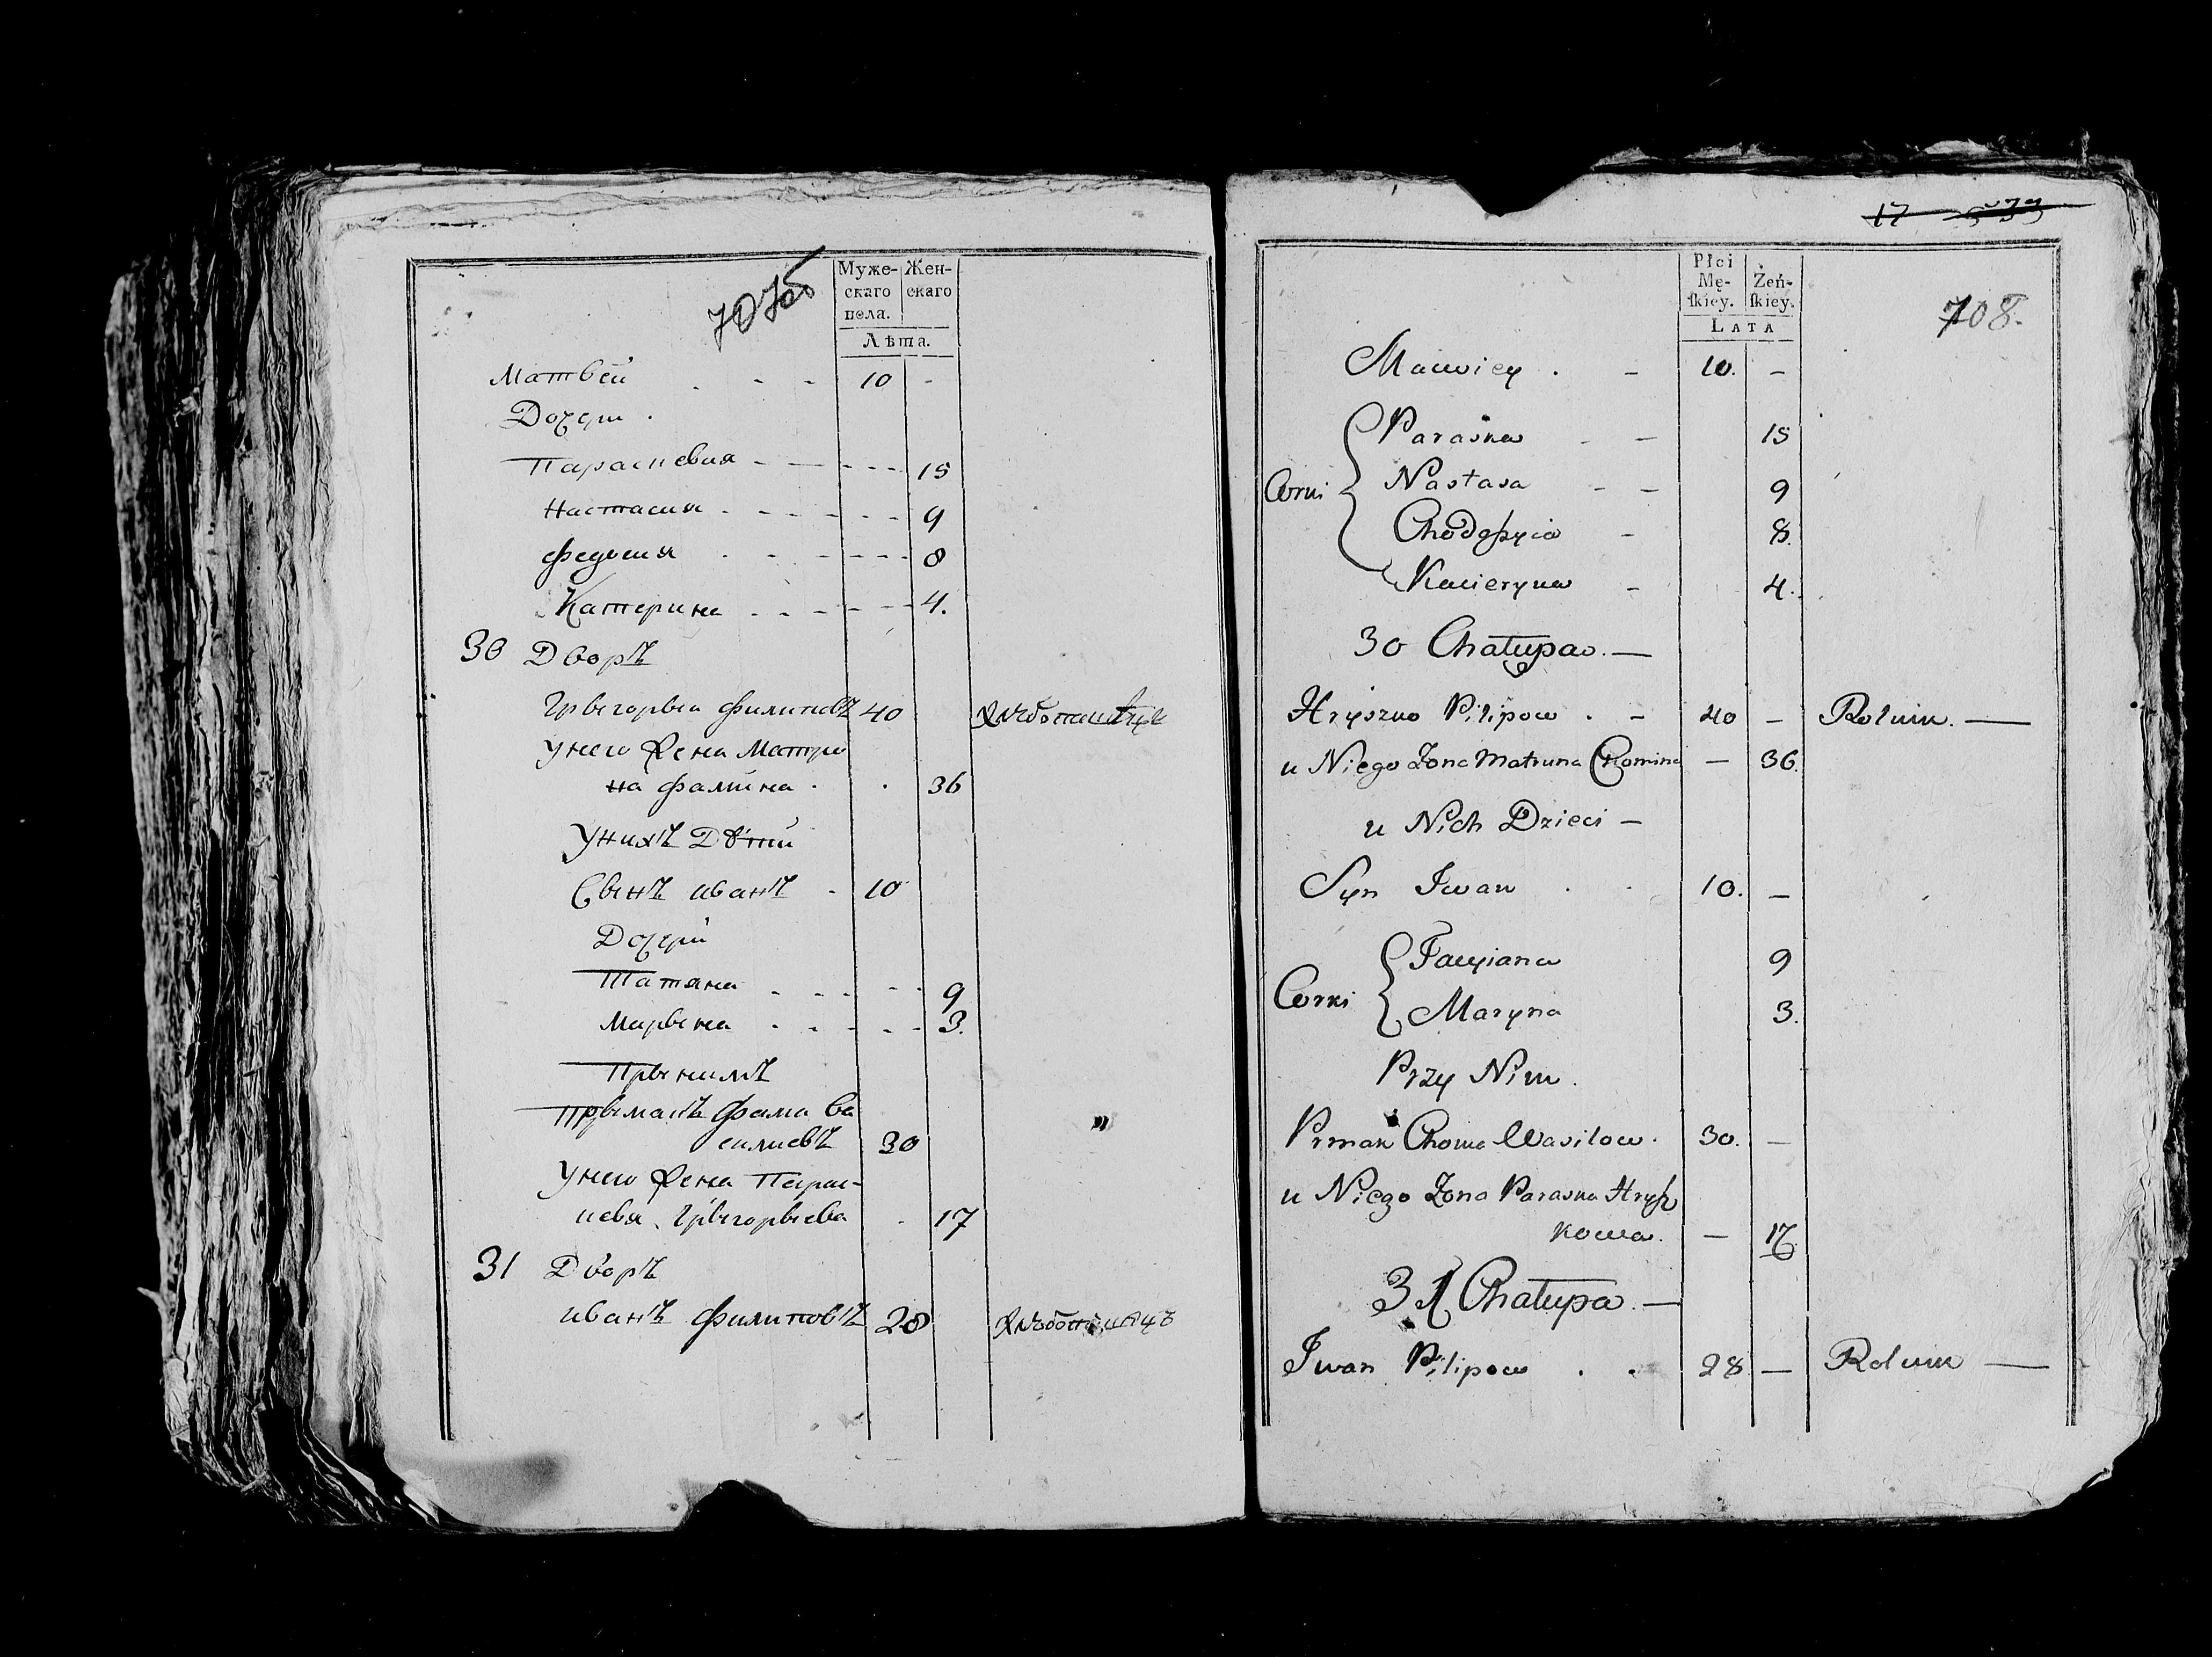 707об
Муже-
скаго
пола.
Жен-
скаго
Лѣта.
Матвей - - - 10 -
Дочери .
Параскевия - - - - - 15
Настасия - - - - - 9
Федосия - - - - - 8
Катерина - - - - - 4.
30 Дворъ
Грыгоры Филиповъ 40 Хлѣбопашецъ
У него Жена Матру
на Фамина . . 36
У нихъ Дѣти
Сынъ Иванъ - 10
Дочери
Татяна - - - - 9
Марына - - - - 3.
Пры нимъ
Прымакъ Фама Ва
силиевъ 30 "
У него Жена Парас-
кевя Грыгорыева . 17
31 Дворъ
Иванъ Филиповъ 28 Хлѣбопашецъ
17
708.
Płci
Mę-
skiey.
Żeń-
skiey.
LATA
Maciey . - 10. -
Corki
Paraska - - 15
Nastasa - - 9
Chodoszyia - 8.
Kacieryna - 4.
30 Chałupa. —
Hryszko Pilipow . - 40 - Rolnik. —
u Niego Zona Matruna Chomina — 36.
u Nich Dzieci —
Syn Iwan . . 10. —
Corki
Tacyiana 9
Maryna 3.
Przy Nim.
Prmak Choma Wasilow. 30. —
u Niego Zona Paraska Hrysz
kowa. — 17.
31 Chałupa. —
Iwan Pilipow . . 28 — Rolnik —